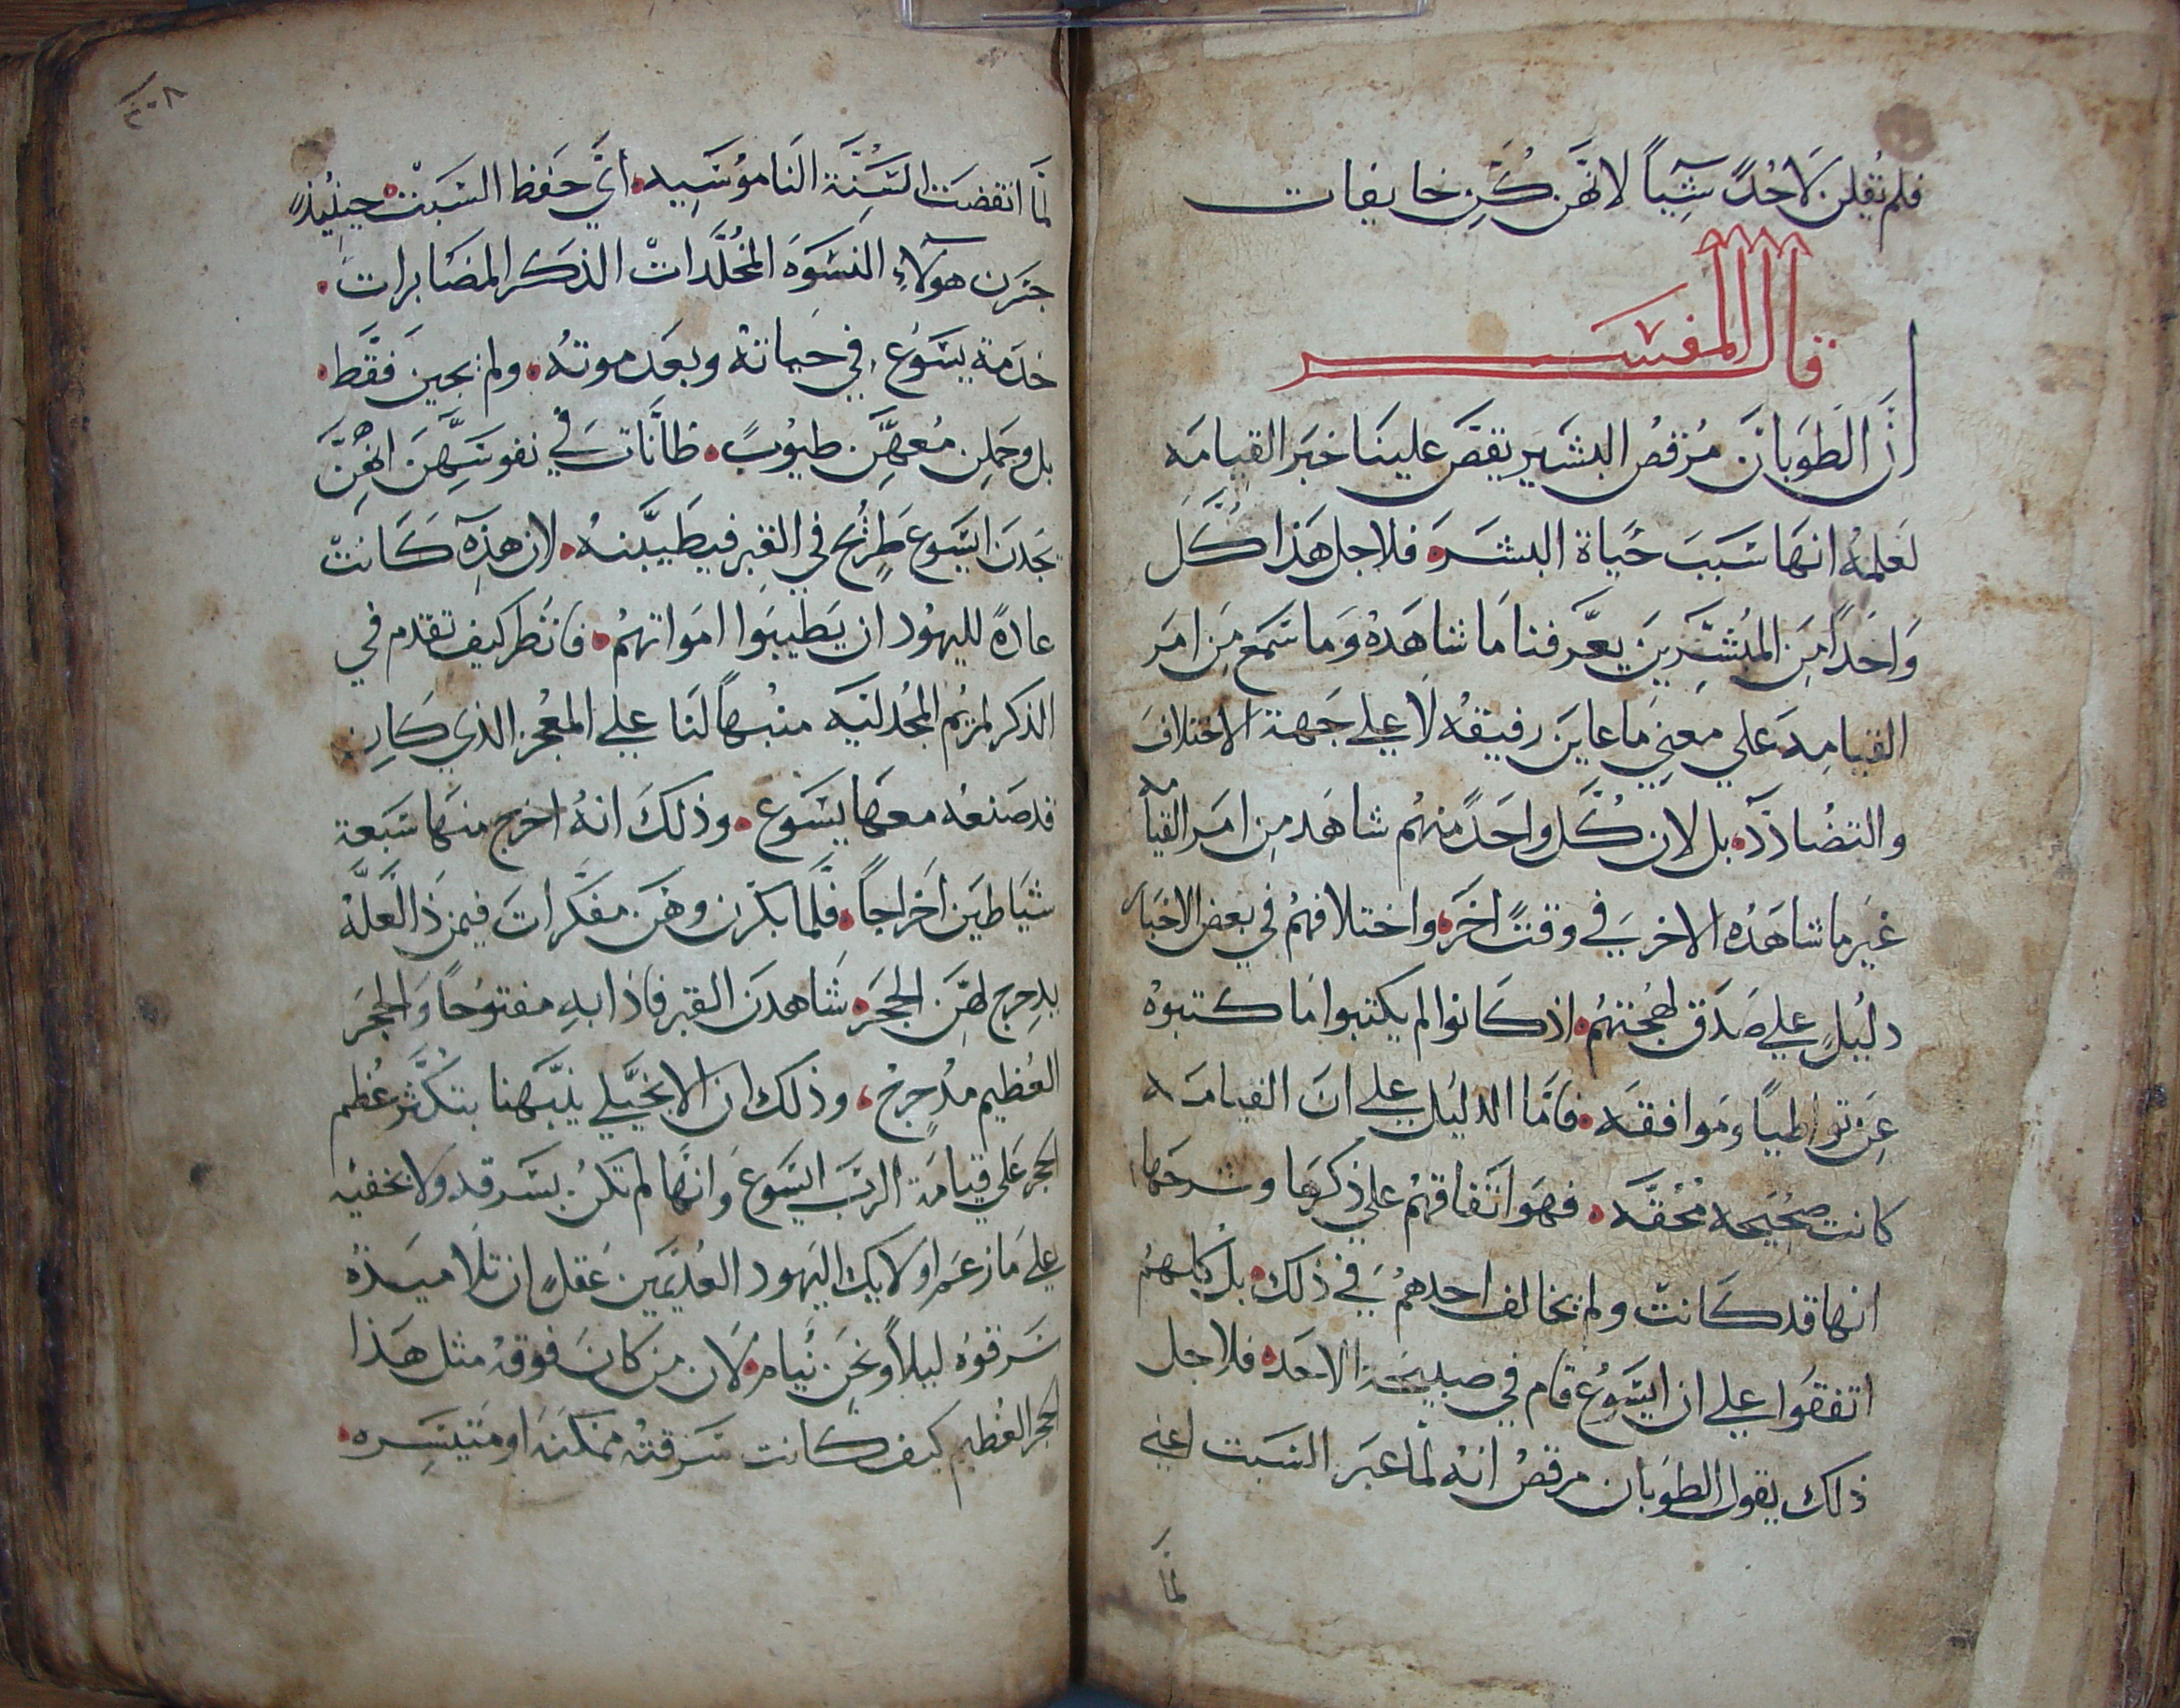 فلم تقلن لاحدً شيياً لانهن كن خايفات
قال المفسر
ان الطوبان مرقص البشير يقص علينا خبر القيامه
لعلمه انها سبب حياة البشر، فلاجل هذا كل
واحداً من المبشرين يعرفنا ما شاهده وما سمع من امر
القيامه علي معني ما عاين رفيقه لا علي جهة الاختلاف
والتضادد، بل لان كل واحدً منهم شاهد من امر القيامه
غير ما شاهده الاخر في وقتً اخر، واختلافهم في بعض الاخبار
دليلٍ علي صدق لهجتهم، اذ كانوا لم يكتبوا ما كتبوه
عن تواطياً وموافقه، فاما الدليل علي ان القيامه
كانت صحيحه محقه، فهو اتفاقهم علي ذكرها وشرحها،
انها قد كانت ولم يخالف احدهم في ذلك، بل كلهم
اتفقوا علي ان ايسوع قام في صبيحة الاحد، فلاجل
ذلك يقول الطوبان مرقص انه لما عبر السبت اعني
لما
٣٠٨
لما انقضت السنة الناموسيه، اي حفظ السبت، حينيذٍ
جزن هولاء النسوة المخلدات الذكر المصابرات،
خدمة يسوع، في حياته وبعد موته، ولم يجين فقط،
بل وحملن معهن طيوبً، ظانات في نفوسهن انهن
يجدن ايسوع طريح في القبر فيطيبنه، لان هذه كانت
عادة لليهود ان يطيبوا امواتهم، فانظر كيف تقدم في
الذكر لمريم المجدلنيه منبهاً لنا علي المعجز الذي كان
قد صنعه معها يسوع، وذلك انه اخرج منها سبعة
شياطين اخراجاً، فلما بكرن وهن مفكرات فيمن ذا لعله
يدحرج لهن الحجر، شاهدن القبر فاذا به مفتوحاً والحجر
العظيم مدحرج، وذلك ان الانجيلي ينبهنا بتكثر عظم
الحجر علي قيامة الرب ايسوع وانها لم تكن بسرقه ولا بخفيه
علي ما زعم اولايك اليهود العديمين عقل ان تلاميذه
سرقوه ليلاً ونحن نيام، لان من كان فوقه مثل هذا
الحجر العظيم كيف كانت سرقته ممكنه او متيسره،